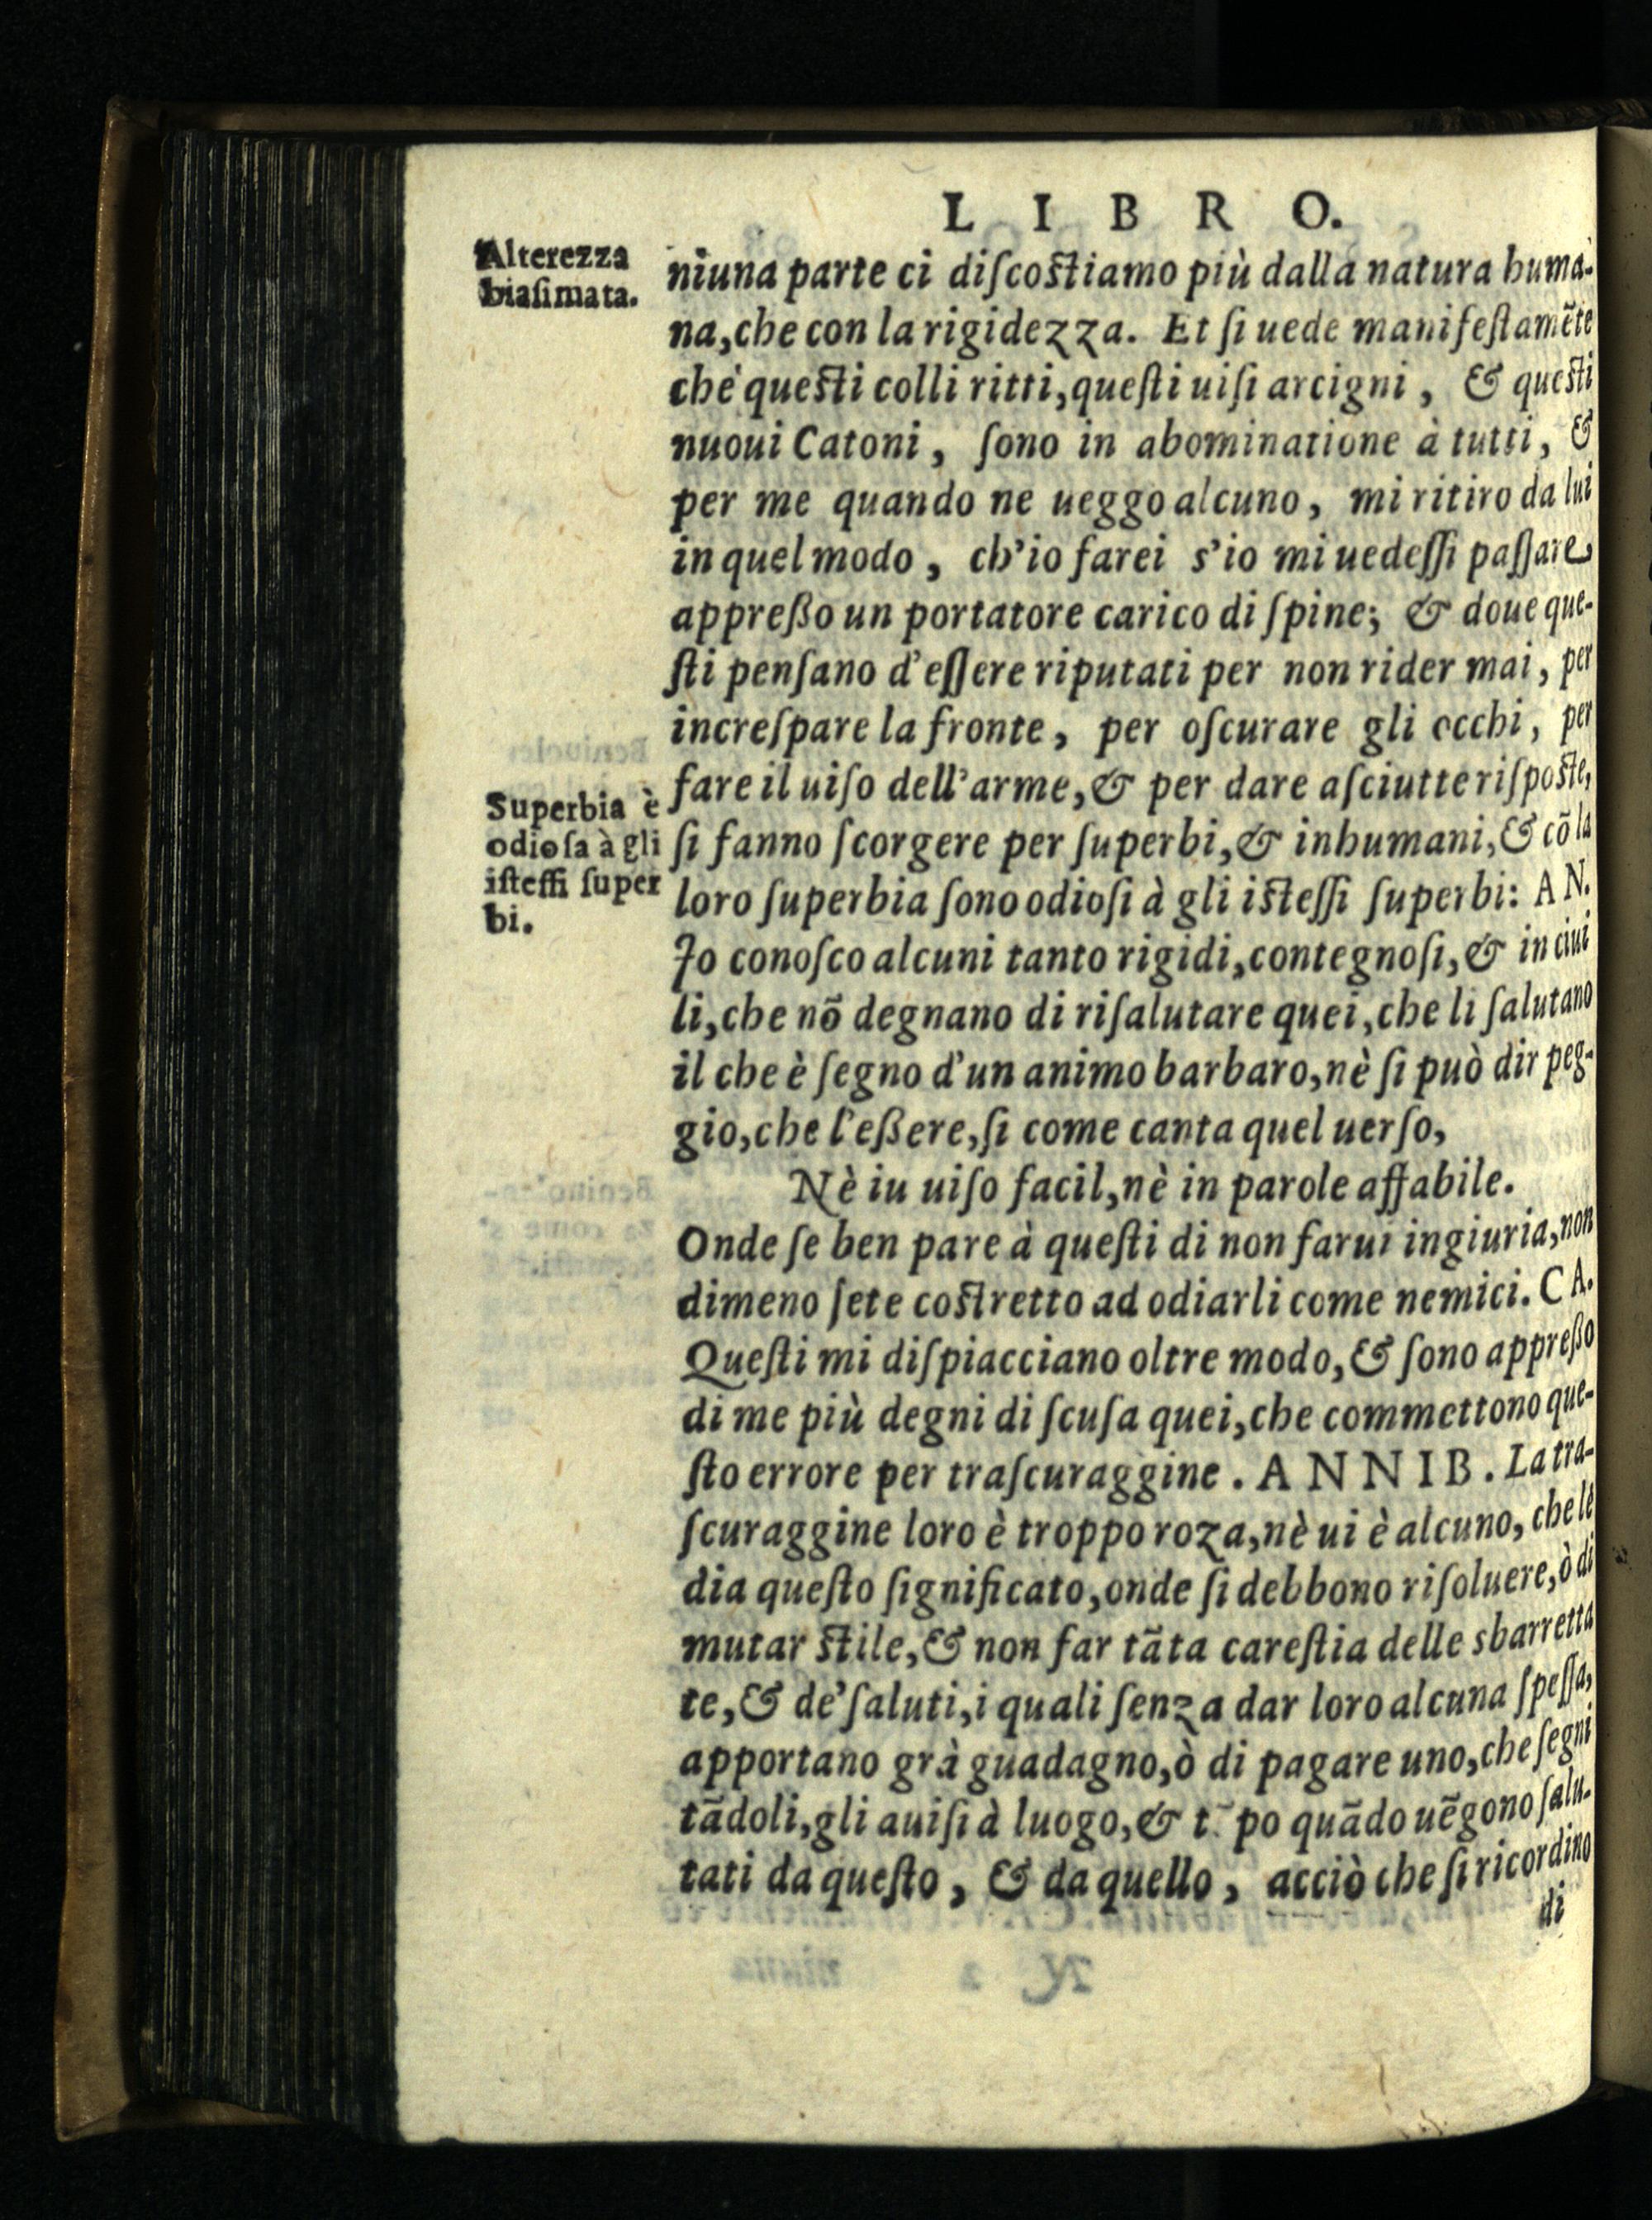 LIBRO.
Alterezza
biaſimata.
niuna parte ci diſcoſtiamo più dalla natura huma-
na, che con la rigidezza. Et ſi uede manifeſtamẽte
che queſti colli ritti, queſti uiſi arcigni, & queſti
nuoui Catoni, ſono in abominatione à tutti, &
per me quando ne ueggo alcuno, mi ritiro da lui
in quel modo, ch'io farei s'io mi uedeſſi paſſare
appreßo un portatore carico di ſpine; & doue que-
ſti penſano d'eſſere riputati per non rider mai, per
increſpare la fronte, per oſcurare gli occhi, per
fare il uiſo dell'arme, & per dare aſciutte riſpoſte,
Superbia è
odioſa à gli
iſteſſi ſuper
bi.
ſi fanno ſcorgere per ſuperbi, & inhumani, & cõ la
loro ſuperbia ſono odioſi à gli iſteſſi ſuperbi: AN.
Io conoſco alcuni tanto rigidi, contegnoſi, & inciui
li, che nõ degnano di riſalutare quei, che li ſalutano
il che è ſegno d'un animo barbaro, nè ſi può dir peg-
gio, che l'eßere, ſi come canta quel uerſo,
Nè iu uiſo facil, nè in parole affabile.
Onde ſe ben pare à queſti di non farui ingiuria, non
dimeno ſete coſtretto ad odiarli come nemici. CA.
Queſti mi diſpiacciano oltre modo, & ſono appreßo
di me più degni di ſcuſa quei, che commettono que-
ſto errore per traſcuraggine. ANNIB. La tra-
ſcuraggine loro è troppo roza, nè ui è alcuno, che le
dia queſto ſignificato, onde ſi debbono riſoluere, ò di
mutar ſtile, & non far tãta careſtia delle sbarretta
te, & de' ſaluti, i quali ſenza dar loro alcuna ſpeſſa,
apportano grà guadagno, ò di pagare uno, che ſegni
tãdoli, gli auiſi à luogo, & t̃ po quãdo uẽgono ſalu-
tati da queſto, & da quello, acciò che ſi ricordino
di